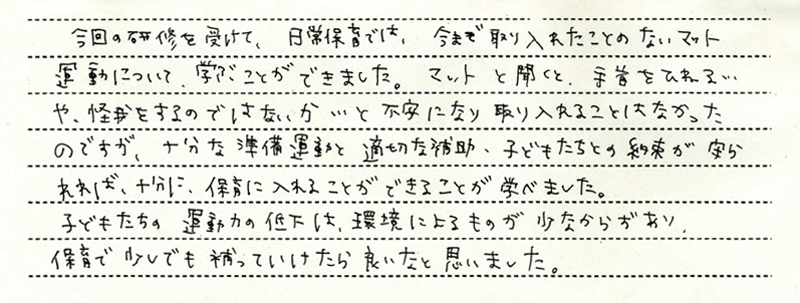 今回の研修を受けて、日常保育では、今まで取り入れたことのないマット
運動について、学ぶことができました。マットと聞くと、手首をひねる…
や、怪我をするのではないか…と不安になり取り入れることはなかった
のですが、十分な準備運動と適切な補助、子どもたちとの約束が守ら
れれば、十分に、保育に入れることができることが学べました。
子どもたちの運動力の低下は、環境によるものが少なからずあり、
保育で少しでも補っていけたら良いなと思いました。